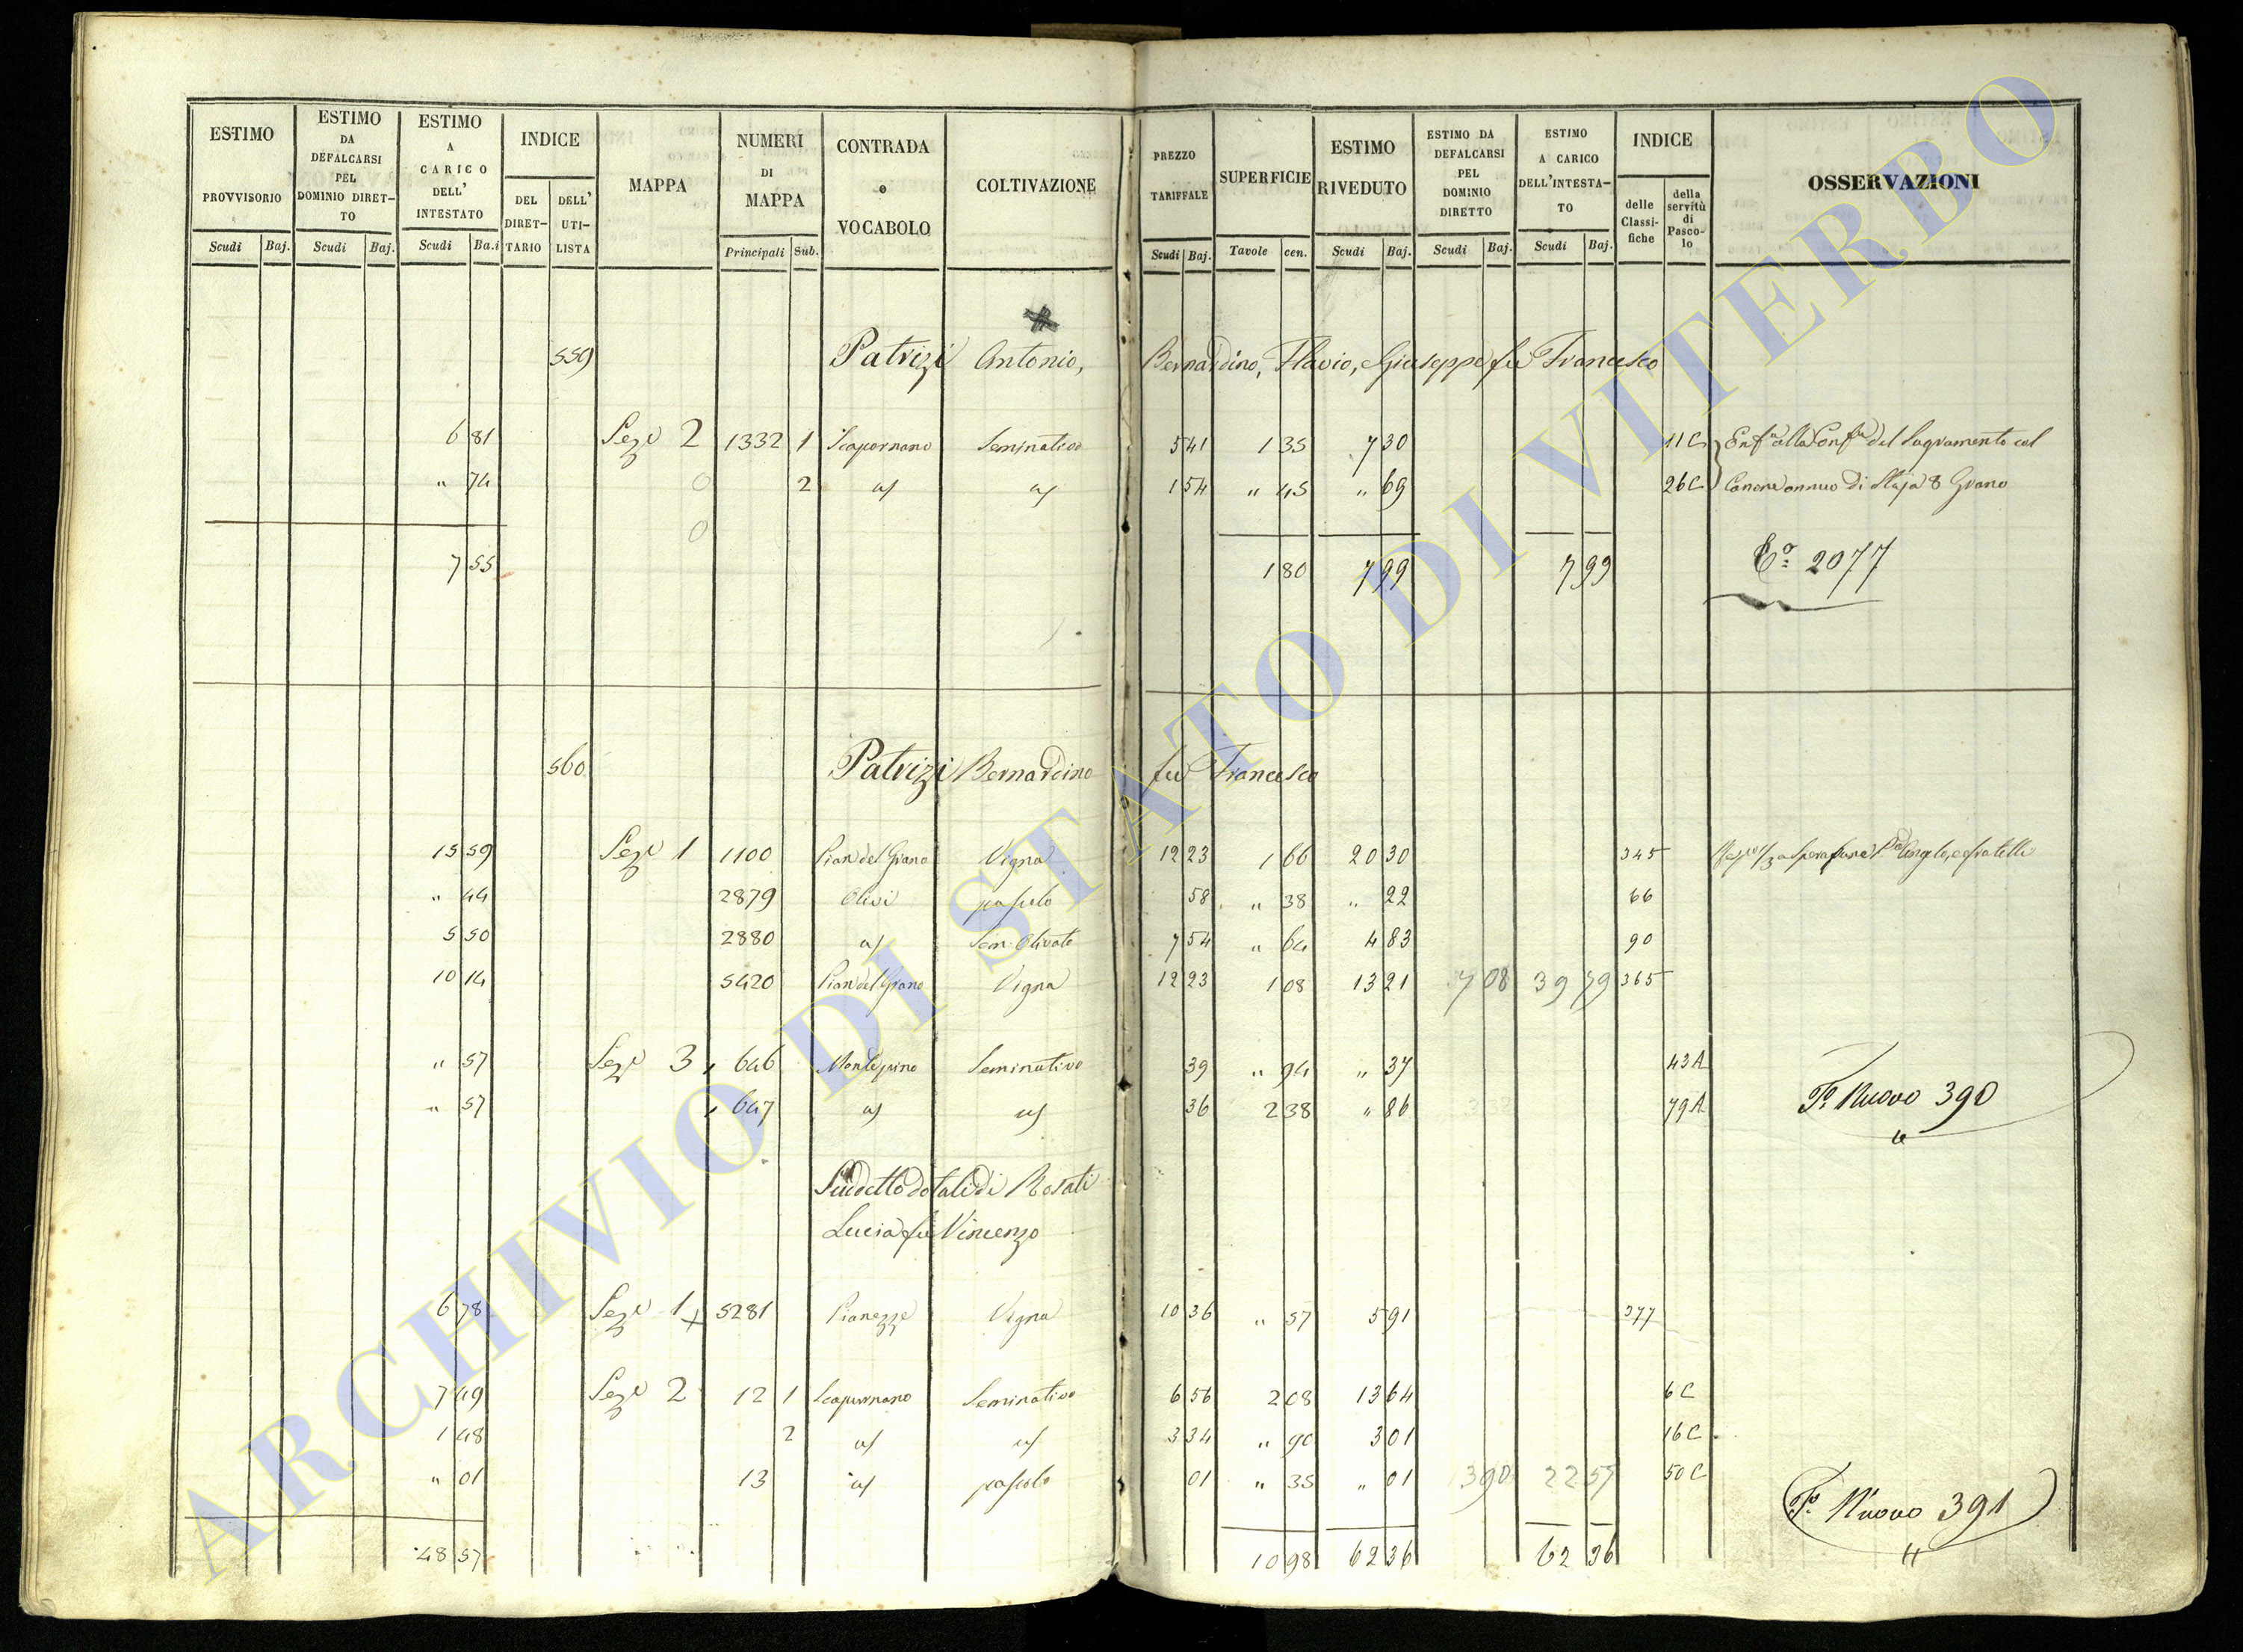 ESTIMO PROVVISORIO Scudi Baj.
ESTIMO DA DEFALCARSI PEL DOMINIO DIRET-TO Scudi Baj.
ESTIMO A CARICO DELL' INTESTATO Scudi Ba.i
INDICE DEL DIRET-TARIO DELL' UTI-LISTA
MAPPA
NUMERI DI MAPPA Principali Sub.
CONTRADA o VOCABOLO
COLTIVAZIONE
PREZZO TARIFFALE Scudi Baj.
SUPERFICIE Tavole cen.
ESTIMO RIVEDUTO Scudi Baj.
ESTIMO DA DEFALCARSI PEL DOMINIO DIRETTO Scudi Baj.
ESTIMO A CARICO DELL'INTESTA-TO Scudi Baj.
INDICE delle Classi-fiche della servitù di Pasco-lo
OSSERVAZIONI
559 Patrizi Antonio, Bernardino, Flavio, Giuseppe fu Francesco
6 81 Sez. 2 1332 1 Scapornano Seminativo 5 41 1 35 7 30 11 C Enf.a alla Conf.a del Sagramento col
" 74 2 a/ a/ 1 54 " 45 " 69 26 C Canone annuo di Staja 8 Grano
7 55 1 80 7 99 7 99 2077
560 Patrizi Bernardino fu Francesco
15 59 Sez. 1 1100 Pian del Grano Vigna 12 23 1 66 20 30 345
" 44 2879 Olivi pascolo 58 " 38 " 22 66
5 50 2880 a/ Sem. Olivato 7 54 " 64 4 83 90
10 14 5420 Pian del Grano Vigna 12 23 1 08 13 21 7 08 39 79 365
" 57 Sez. 3 646 Seminativo 39 " 94 " 37 43 A
" 57 647 a/ a/ 36 2 38 " 86 79 A
F.o Nuovo 390
Suddetto dotali di Rosati
Lucia fu Vincenzo
6 78 Sez. 1 5281 Pianezze Vigna 10 36 " 57 5 91 377
7 49 Sez. 2 12 1 Scapornano Seminativo 6 56 2 08 13 64 6 C
1 48 2 a/ a/ 3 34 " 90 3 01 16 C
" 01 13 a/ pascolo 01 " 35 " 01 3 90 22 57 50 C
F.o Nuovo 391
48 57 10 98 62 36 62 36
ARCHIVIO DI STATO DI VITERBO